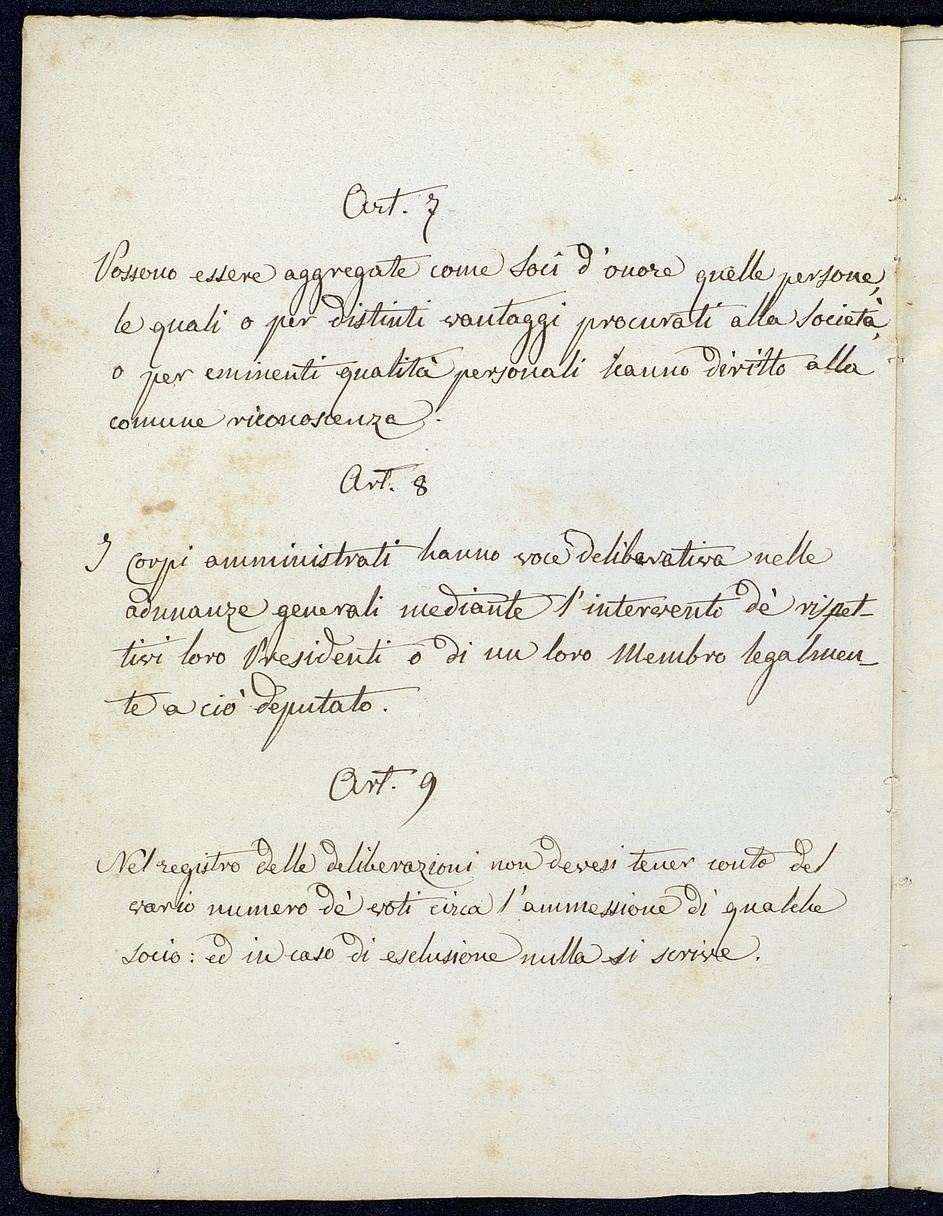 Art. 7
Possono essere aggregate come Socî d'onore quelle persone,
le quali o per distinti vantaggi procurati alla Società,
o per eminenti qualità personali hanno diritto alla
comune riconoscenza.
Art. 8
I Corpi amministrati hanno voce deliberativa nelle
adunanze generali mediante l'intervento dè rispet-
tivi loro Presidenti o di un loro Membro legalmen-
te a ciò deputato.
Art. 9
Nel registro delle deliberazioni non devesi tener conto del
vario numero dè voti circa l'ammessione di qualche
socio: ed in caso di esclusione nulla si scrive.